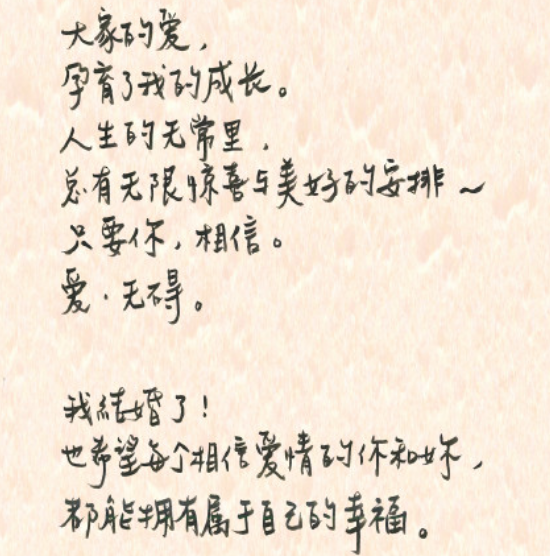 大家的爱，
孕育了我的成长。
人生的无常里，
总有无限惊喜与美好的安排～
只要你，相信。
爱·无碍。
我结婚了！
也希望每个相信爱情的你和妳，
都能拥有属于自己的幸福。